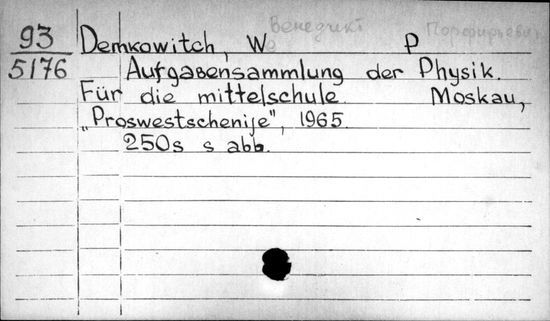 Венедикт Порфирьевич
93 Demkowitch, W P
5176 Aufgabensammlung der Physik.
Für die mittelschule. Moskau,
„Proswestschenije", 1965.
250s s abb.